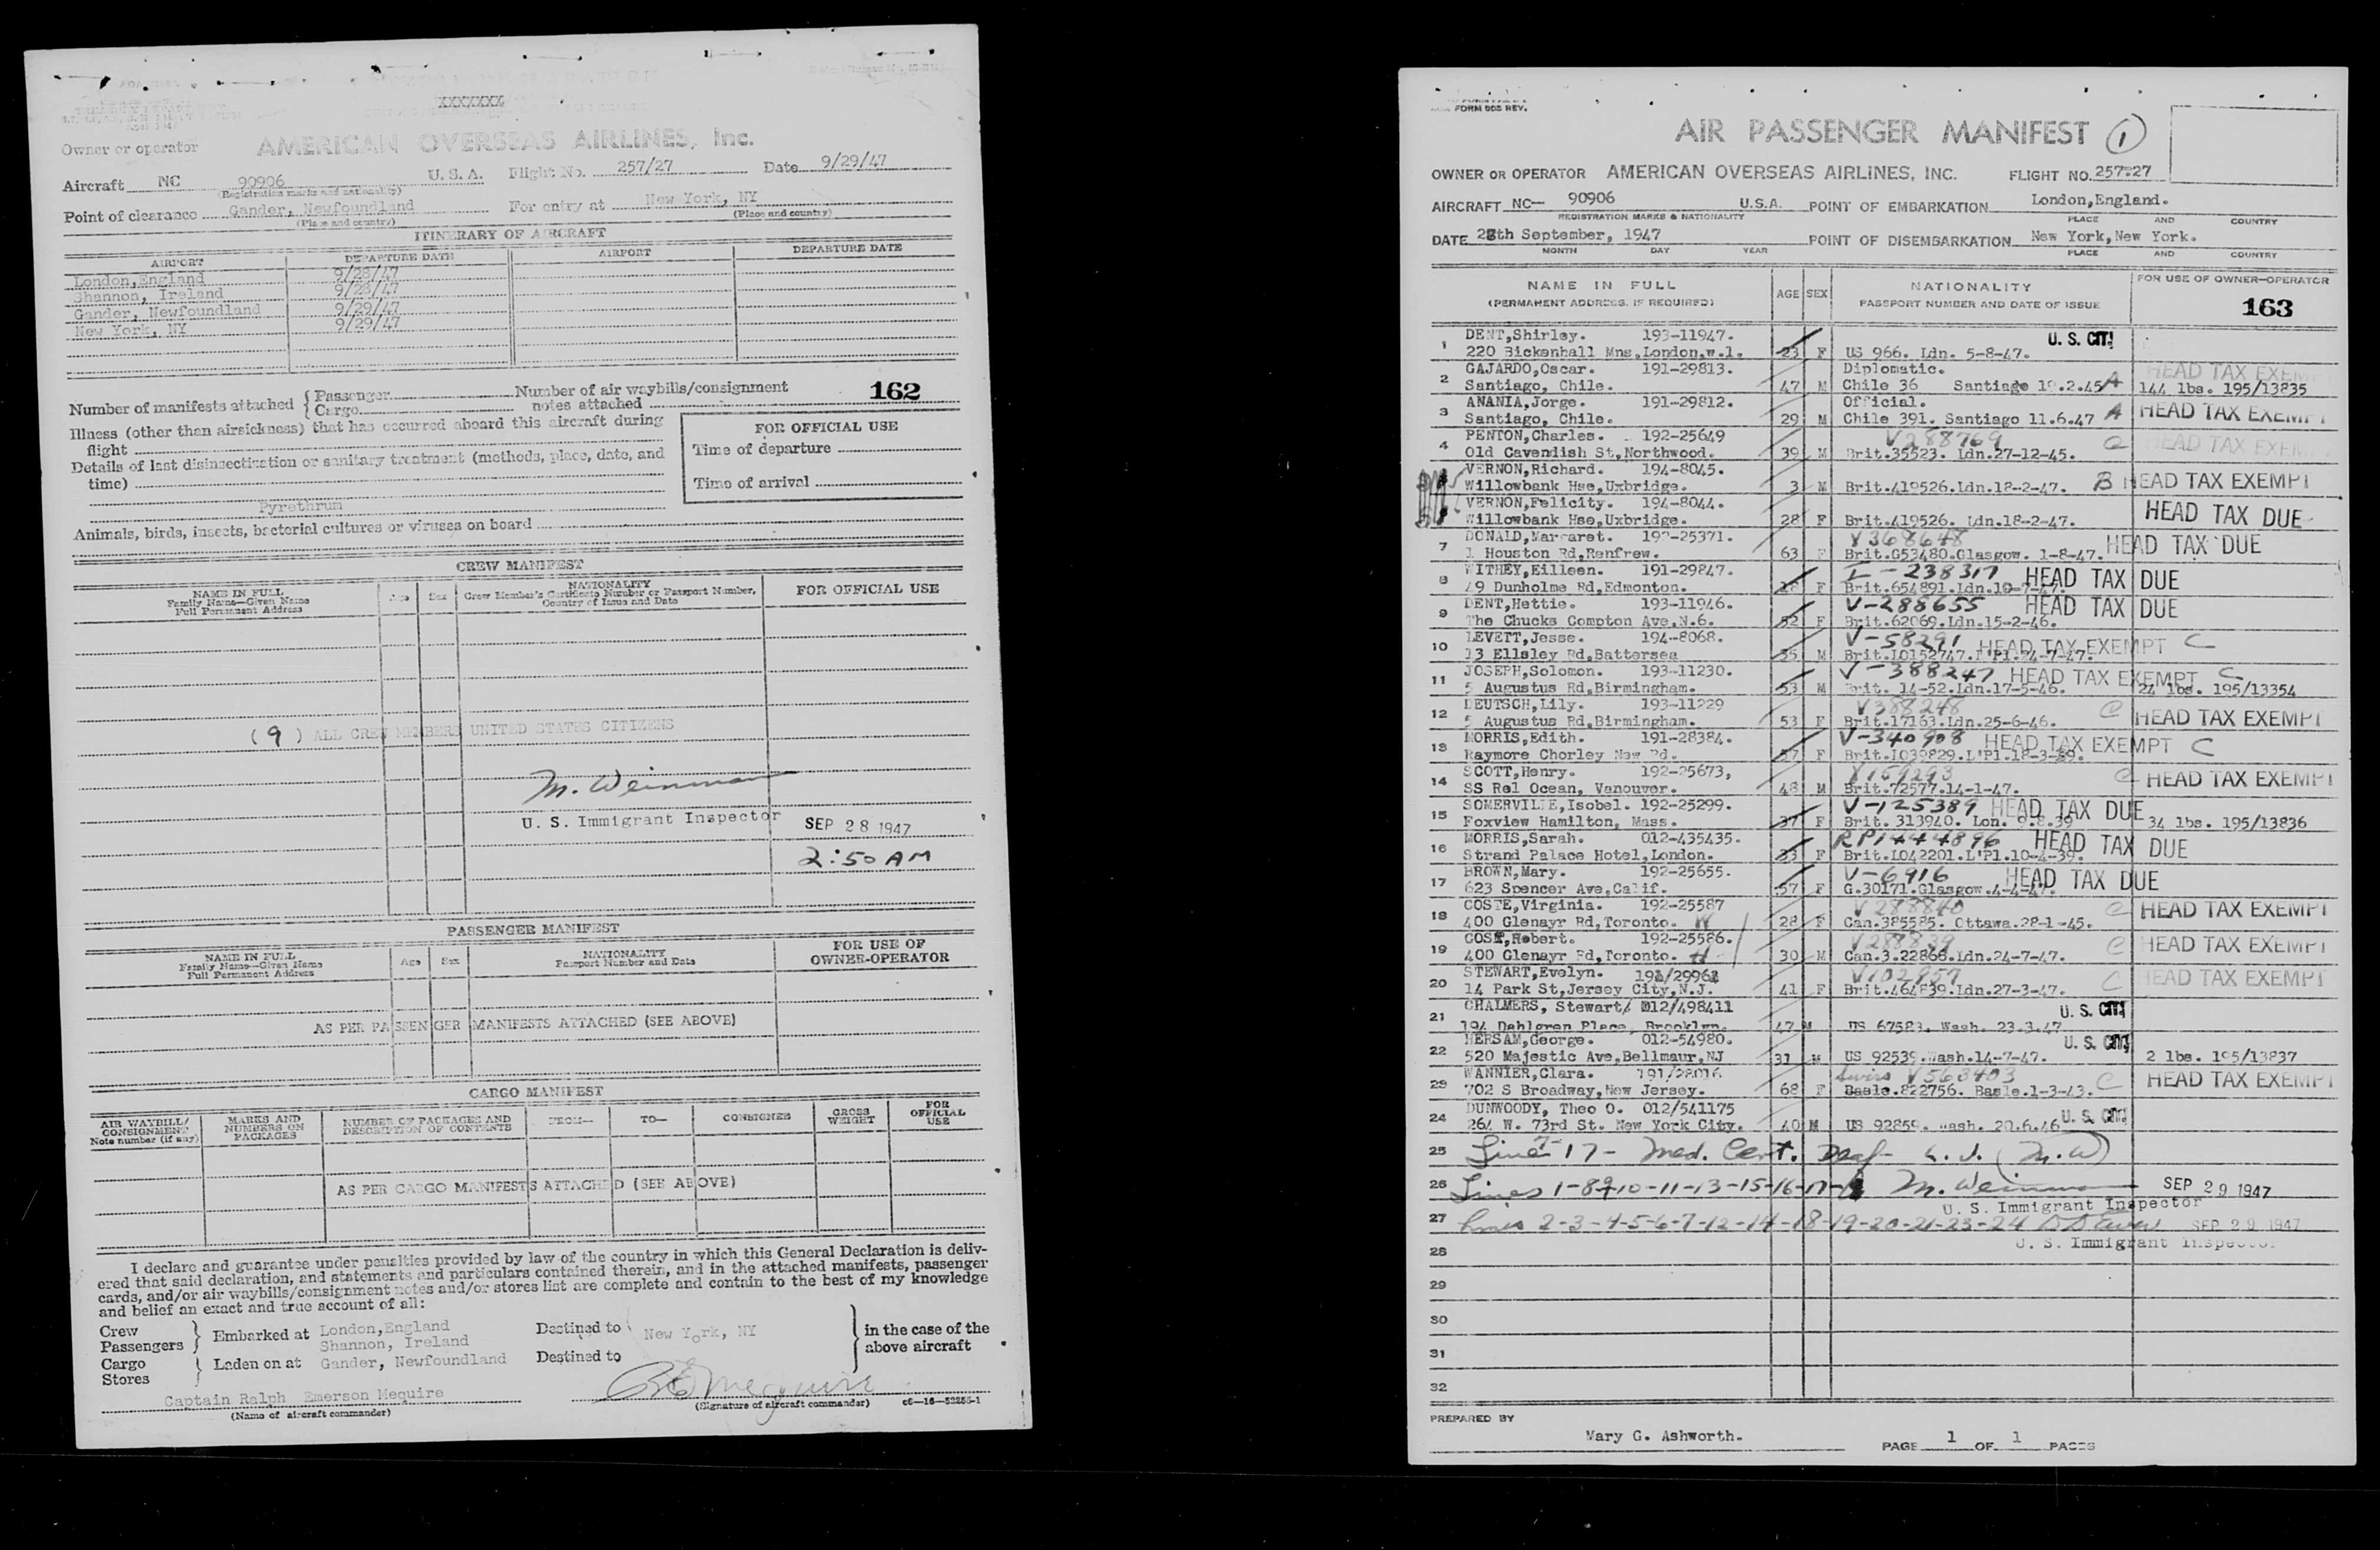 XXXXXXX
Owner or operator AMERICAN OVERSEAS AIRLINES, Inc.
Aircraft NC 90906 U. S. A. Flight No. 257/27 Date 9/29/47
(Registration marks and nationality)
Point of clearance Gander, Newfoundland For entry at New York, NY
(Place and country) (Place and country)
ITINERARY OF AIRCRAFT
AIRPORT DEPARTURE DATE AIRPORT DEPARTURE DATE
London,England 9/28/47
Shannon, Ireland 9/28/47
Gander, Newfoundland 9/29/47
New York, NY 9/29/47
Number of manifests attached { Passenger Number of air waybills/consignment 162
Cargo notes attached
Illness (other than airsickness) that has occurred aboard this aircraft during
flight
Details of last disinsectization or sanitary treatment (methods, place, date, and
time)
Pyrethrum
FOR OFFICIAL USE
Time of departure
Time of arrival
Animals, birds, insects, bacterial cultures or viruses on board
CREW MANIFEST
NAME IN FULL
Family Name—Given Name
Full Permanent Address
Age Sex
NATIONALITY
Crew Member's Certificate Number or Passport Number,
Country of Issue and Date
FOR OFFICIAL USE
(9) ALL CREW MEMBERS UNITED STATES CITIZENS
M. Weinman
U. S. Immigrant Inspector SEP 28 1947
2:50 AM
PASSENGER MANIFEST
NAME IN FULL
Family Name—Given Name
Full Permanent Address
Age Sex
NATIONALITY
Passport Number and Date
FOR USE OF
OWNER-OPERATOR
AS PER PASSENGER MANIFESTS ATTACHED (SEE ABOVE)
CARGO MANIFEST
AIR WAYBILL/
CONSIGNMENT
Note number (if any)
MARKS AND
NUMBERS ON
PACKAGES
NUMBER OF PACKAGES AND
DESCRIPTION OF CONTENTS
FROM— TO— CONSIGNEE
GROSS
WEIGHT
FOR
OFFICIAL
USE
AS PER CARGO MANIFESTS ATTACHED (SEE ABOVE)
I declare and guarantee under penalties provided by law of the country in which this General Declaration is deliv-
ered that said declaration, and statements and particulars contained therein, and in the attached manifests, passenger
cards, and/or air waybills/consignment notes and/or stores list are complete and contain to the best of my knowledge
and belief an exact and true account of all:
Crew
Passengers } Embarked at London,England Destined to New York, NY } in the case of the
Shannon, Ireland above aircraft
Cargo
Stores } Laden on at Gander, Newfoundland Destined to
Captain Ralph Emerson Mequire
(Name of aircraft commander) (Signature of aircraft commander) c6—16—52255-1
FORM 90S REV.
AIR PASSENGER MANIFEST 1
OWNER OR OPERATOR AMERICAN OVERSEAS AIRLINES, INC. FLIGHT NO. 257-27
AIRCRAFT NC— 90906 U.S.A. POINT OF EMBARKATION London,England.
REGISTRATION MARKS & NATIONALITY PLACE AND COUNTRY
DATE 28th September, 1947 POINT OF DISEMBARKATION New York,New York.
MONTH DAY YEAR PLACE AND COUNTRY
NAME IN FULL
(PERMANENT ADDRESS, IF REQUIRED)
AGE SEX
NATIONALITY
PASSPORT NUMBER AND DATE OF ISSUE
FOR USE OF OWNER—OPERATOR
163
1 DENT,Shirley. 193-11947. U. S. CIT.
220 Bickenhall Mns,London,w.1. 23 F US 966. Ldn. 5-8-47.
2 GAJARDO,Oscar. 191-29813. Diplomatic. HEAD TAX EXEMPT
Santiago, Chile. 47 M Chile 36 Santiago 19.2.45 A 144 lbs. 195/13835
3 ANANIA,Jorge. 191-29812. Official.
Santiago, Chile. 29 M Chile 391. Santiago 11.6.47 A HEAD TAX EXEMPT
4 PENTON,Charles. 192-25649 V288769
Old Cavendish St,Northwood. 39 M Brit.35523. Ldn.27-12-45. C HEAD TAX EXEM
VERNON,Richard. 194-8045.
Willowbank Hse,Uxbridge. 3 M Brit.419526.Ldn.18-2-47. B HEAD TAX EXEMPT
VERNON,Felicity. 194-8044.
Willowbank Hse,Uxbridge. 28 F Brit.419526. Ldn.18-2-47. HEAD TAX DUE
7 DONALD,Margaret. 192-25371. V368648
1 Houston Rd,Renfrew. 63 F Brit.G53480.Glasgow. 1-8-47. HEAD TAX DUE
8 WITHEY,Eilleen. 191-29847. I-238317 HEAD TAX DUE
49 Dunholme Rd,Edmonton. 18 F Brit.654891.Ldn.10-7-47.
9 DENT,Hettie. 193-11946. V-288655 HEAD TAX DUE
The Chucks Compton Ave,N.6. 52 F Brit.62069.Ldn.15-2-46.
10 LEVETT,Jesse. 194-8068. V-58291 HEAD TAX EXEMPT C
13 Ellsley Rd,Battersea 35 M Brit.10152747.L'Pl.24-7-47.
11 JOSEPH,Solomon. 193-11230. V-388247 HEAD TAX EXEMPT C
5 Augustus Rd,Birmingham. 53 M Brit. 14-52.Ldn.17-5-46. 24 lbs. 195/13354
12 DEUTSCH,Lily. 193-11229 V388248
5 Augustus Rd,Birmingham. 53 F Brit.17163.Ldn.25-6-46. C HEAD TAX EXEMPT
13 MORRIS,Edith. 191-28384. V-340908 HEAD TAX EXEMPT C
Raymore Chorley New Rd. 57 F Brit.1039829.L'Pl.18-3-39.
14 SCOTT,Henry. 192-25673, V159293
SS Rel Ocean, Vanouver. 48 M Brit.72577.14-1-47. C HEAD TAX EXEMPT
15 SOMERVILLE,Isobel. 192-25299. V-125389 HEAD TAX DUE
Foxview Hamilton, Mass. 37 F Brit. 313940. Lon. 9.8.39 34 lbs. 195/13836
16 MORRIS,Sarah. 012-435435. RP1444896 HEAD TAX DUE
Strand Palace Hotel,London. 33 F Brit.L042201.L'Pl.10-4-39.
17 BROWN,Mary. 192-25655. V-6916 HEAD TAX DUE
623 Spencer Ave,Calif. 57 F G.30171.Glasgow.4-4-47.
18 COSTE,Virginia. 192-25587 V288840
400 Glenayr Rd,Toronto. W 28 F Can.385585. Ottawa.28-1-45. C HEAD TAX EXEMPT
19 COST,Robert. 192-25586. V288839
400 Glenayr Rd,Toronto. H 30 M Can.3.22866.Ldn.24-7-47. C HEAD TAX EXEMPT
20 STEWART,Evelyn. 191/29962 V102957
14 Park St,Jersey City,N.J. 41 F Brit.464839.Ldn.27-3-47. C HEAD TAX EXEMPT
21 CHALMERS, Stewart/ 012/498411 U. S. CIT.
194 Dahlgren Place, Brooklyn. 47 M US 67583. Wash. 23.3.47
22 HERSAM,George. 012-54980. U. S. CIT.
520 Majestic Ave,Bellmaur,NJ 31 M US 92539.Wash.14-7-47. 2 lbs. 195/13837
23 WANNIER,Clara. 191/28016 Swiss V563403
702 S Broadway,New Jersey. 68 F Basle.822756. Basle.1-3-43. C HEAD TAX EXEMPT
24 DUNWOODY, Theo O. 012/541175
264 W. 73rd St. New York City. 40 M US 92859. Wash. 20.6.46 U. S. CIT.
25 Line 17 - Med. Cert. Deaf (M.W)
26 Lines 1-8-9-10-11-13-15-16-17- M. Weinman SEP 29 1947
U. S. Immigrant Inspector
27 Lines 2-3-4-5-6-7-12-14-18-19-20-21-23-24 SEP 29 1947
28 U. S. Immigrant Inspector
29
30
31
32
PREPARED BY
Mary G. Ashworth. PAGE 1 OF 1 PAGES